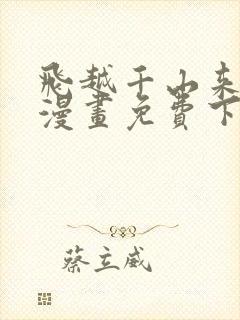 飛越千山来
漫畫免費下
蔡立威